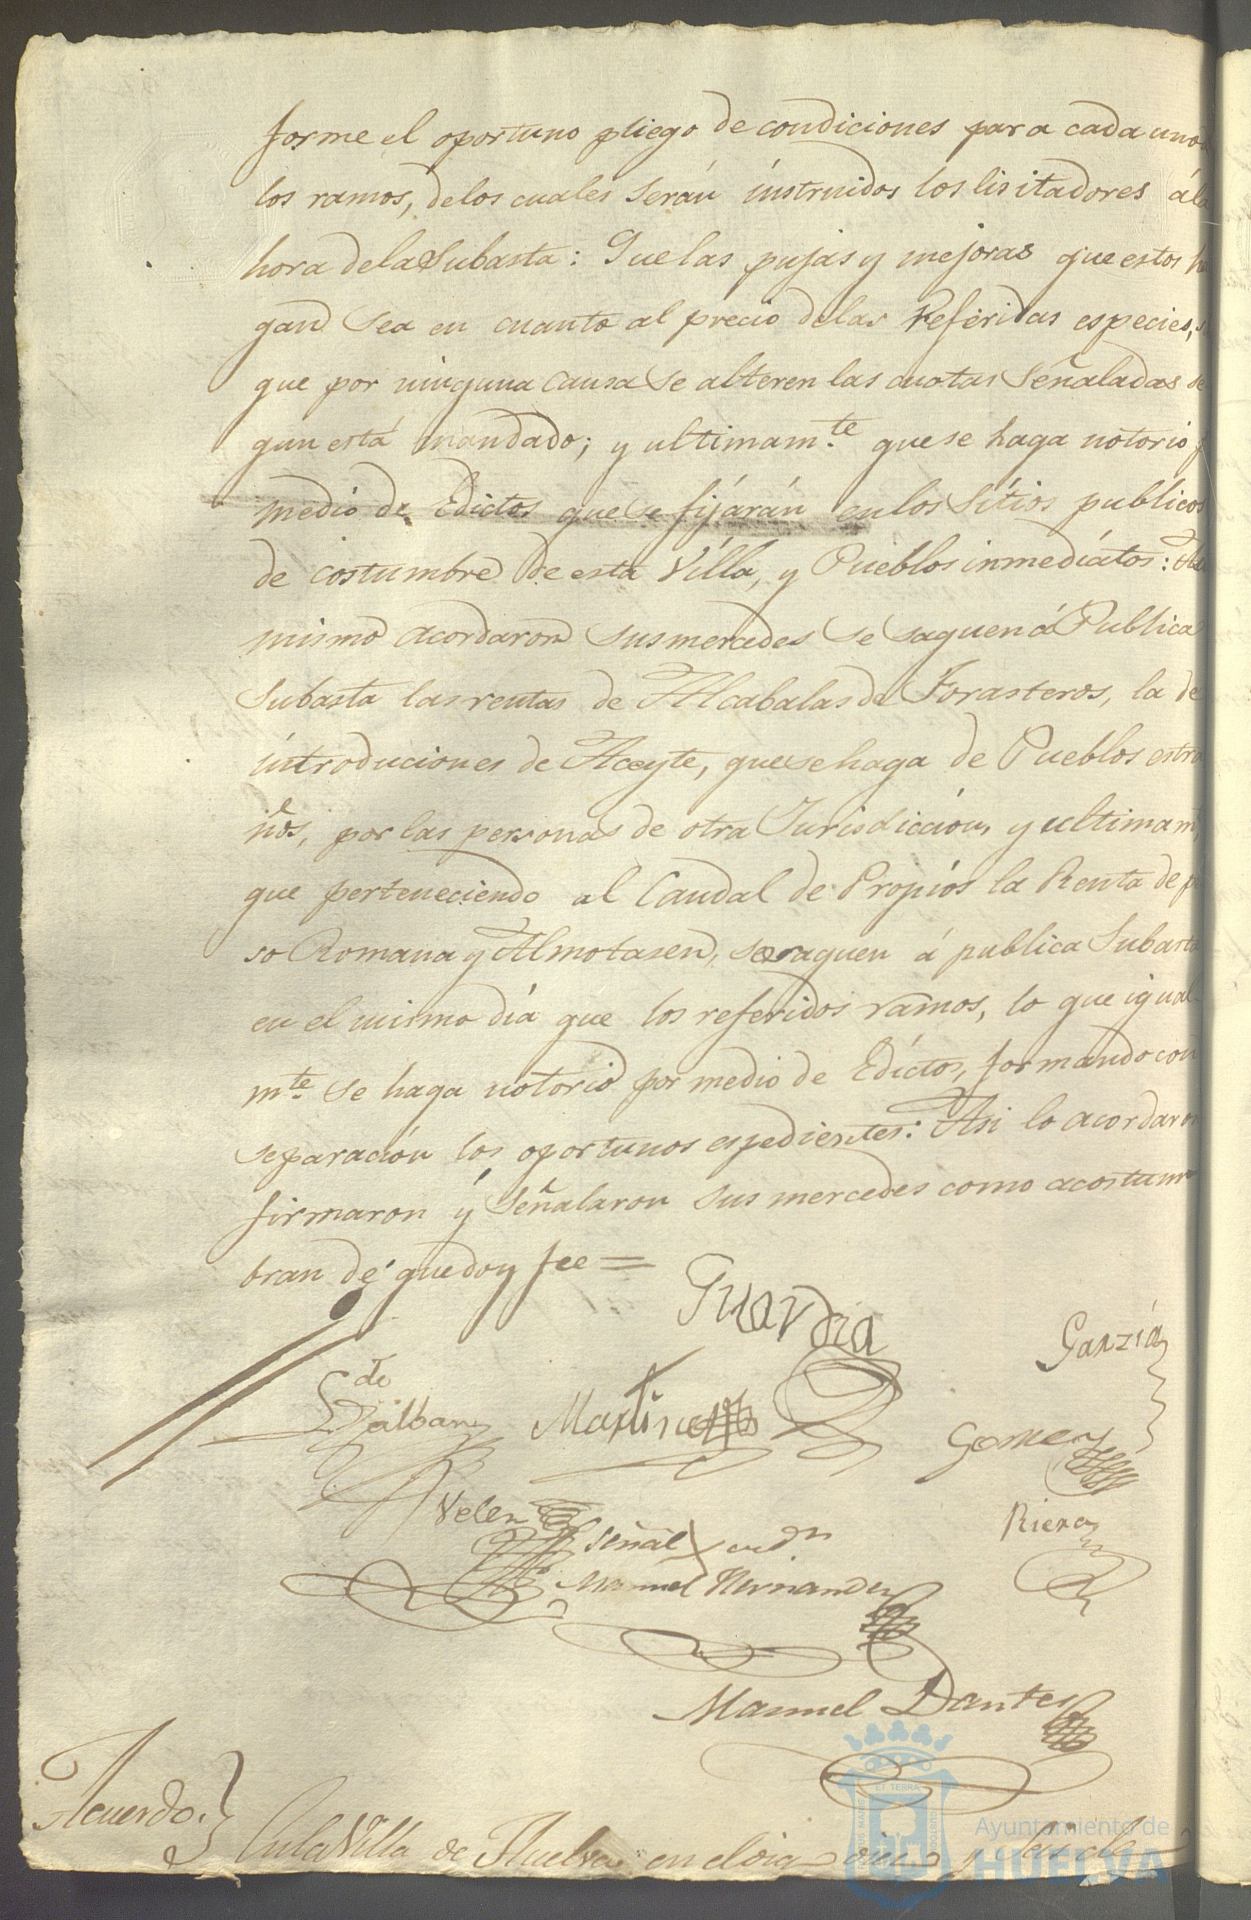 forme el oportuno pliego de condiciones para cada uno
los ramos, delos cuales serán instruidos los lisitadores ála
hora dela Subasta: Que las pujas y mejoras que estos ha
gan sea en cuanto al precio delas referidas especies, s
que por ninguna causa se alteren las cuotas señaladas se
gun está mandado; y ultimam.te que se haga notorio p
medio de Edictos que se fijárán en los Sitios publicos
de costumbre de esta Villa, y Pueblos inmediatos: Asi
mismo acordaron sus mercedes se saquen á Publica
Subasta las rentas de Alcabalas de Forasteros, la de
introduciones de Aceyte, que se haga de Pueblos estra
ños, por las personas de otra Jurisdiccion, y ultimam
que perteneciendo al Caudal de Propios la Renta de pe
so Romana y Almotasen, se saquen á publica Subasta
en el mismo día que los referidos ramos, lo que igual-
m.te se haga notorio por medio de Edictos, formando con
separación los oportunos espedientes: Asi lo acordaron
firmaron y señalaron sus mercedes como acostum
bran dé que doy fee =
Guardia
Garzía
de
Martinez
Gomez
Velez
Riera
señal
Manuel Hernandez
Manuel Dantes
Acuerdo.
En la Villa de Huelva en el dia diez y seis de
ET TERRA
Ayuntamiento de
HUELVA